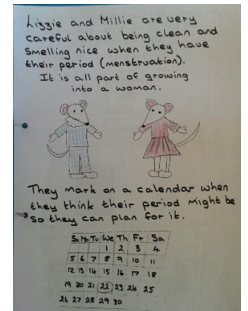 Lizzie and Millie are very
careful about being clean and
smelling nice when they have
their period (menstruation).
It is all part of growing
into a woman.
They mark on a calendar when
they think their period might be
so they can plan for it.
Su Mo Tu We Th Fr Sa
1 2 3 4
5 6 7 8 9 10 11
12 13 14 15 16 17 18
19 20 21 22 23 24 25
26 27 28 29 30